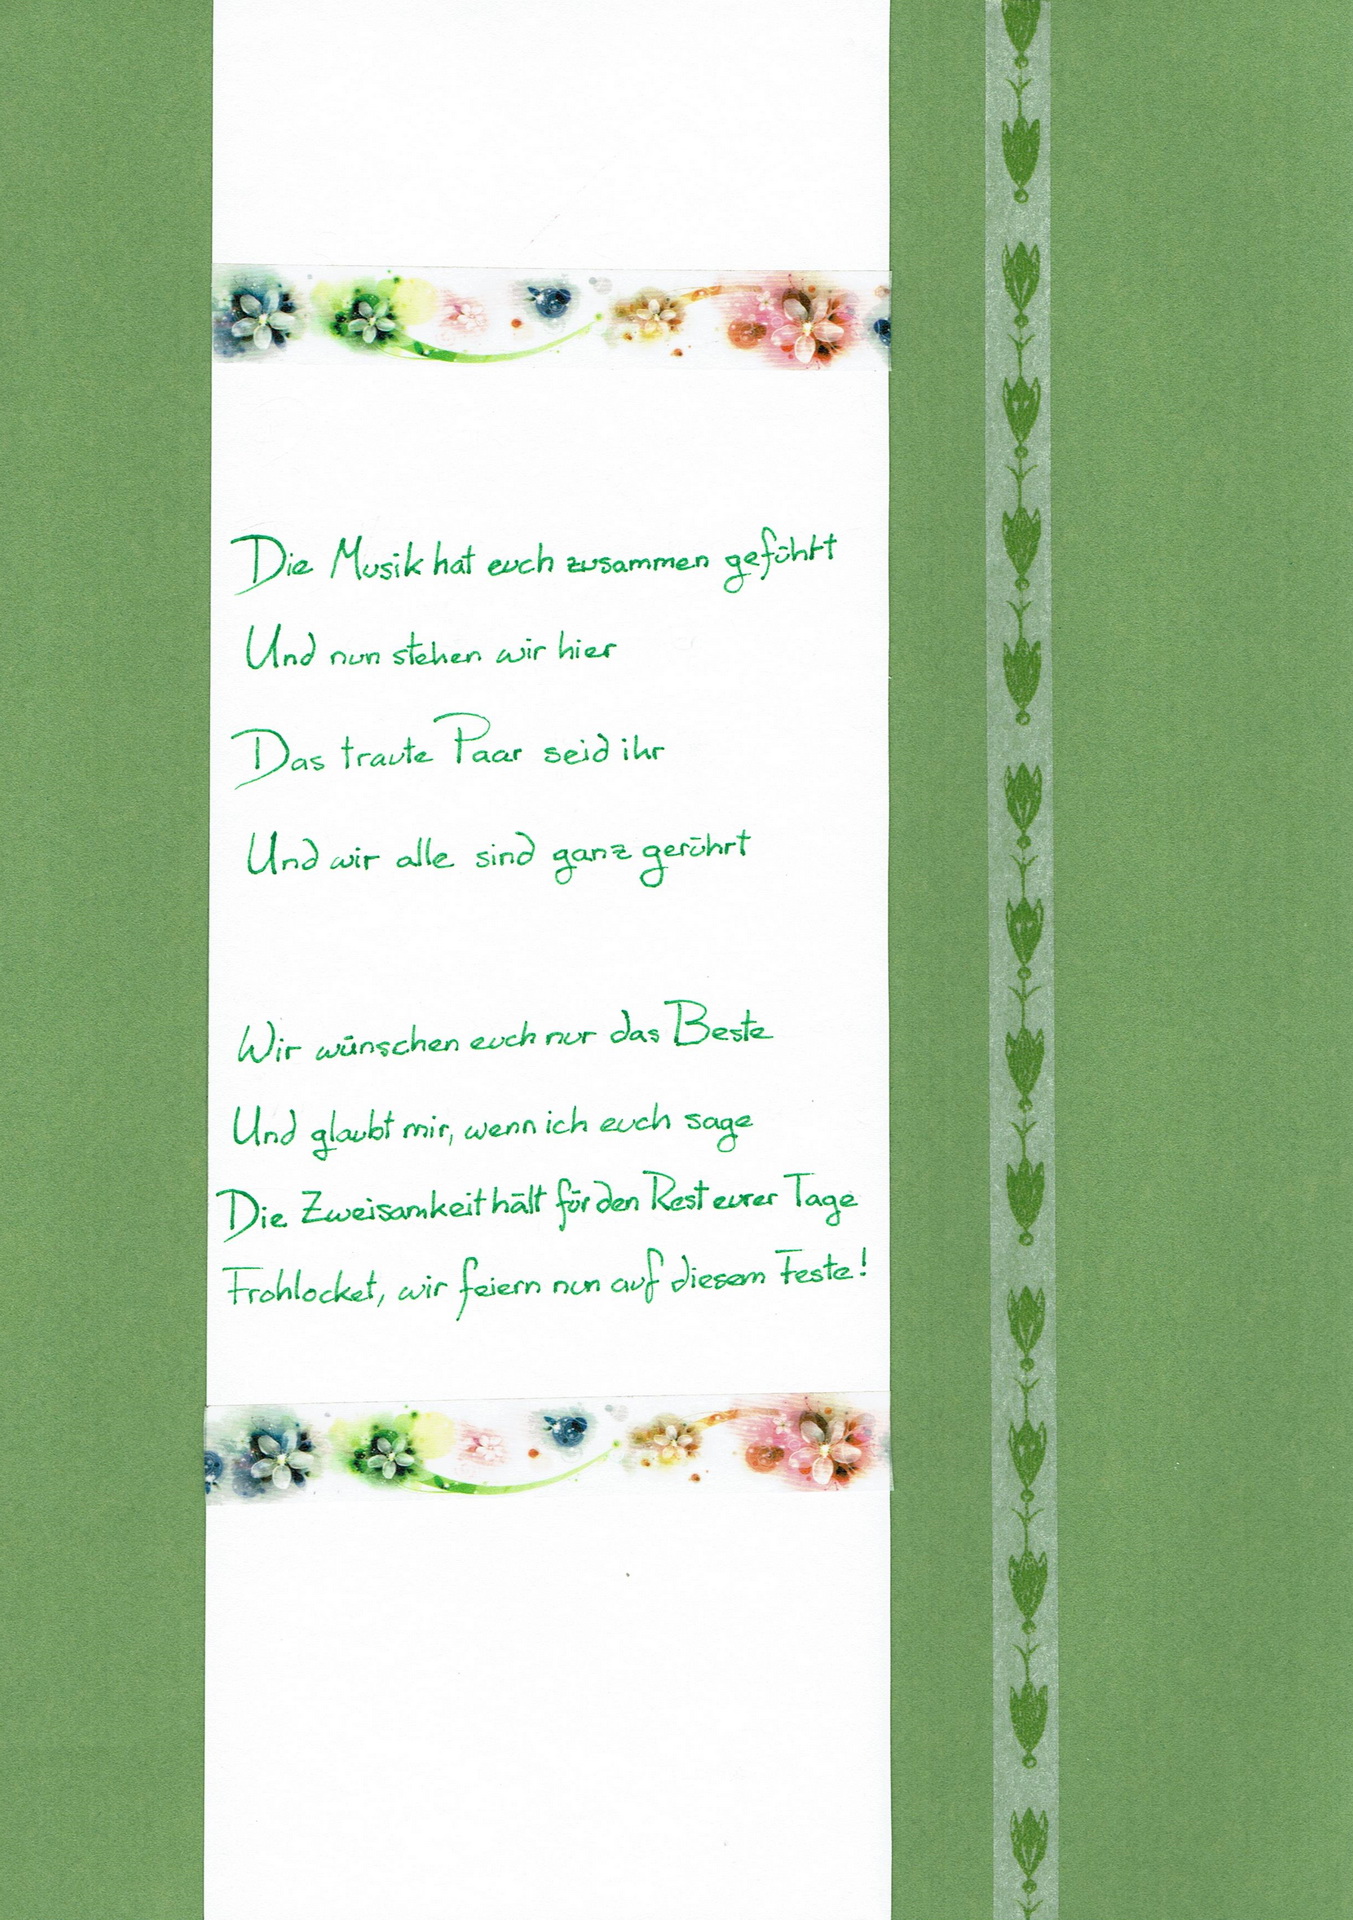 Die Musik hat euch zusammen geführt
Und nun stehen wir hier
Das traute Paar seid ihr
Und wir alle sind ganz gerührt
Wir wünschen euch nur das Beste
Und glaubt mir, wenn ich euch sage
Die Zweisamkeit hält für den Rest eurer Tage
Frohlocket, wir feiern nun auf diesem Feste!